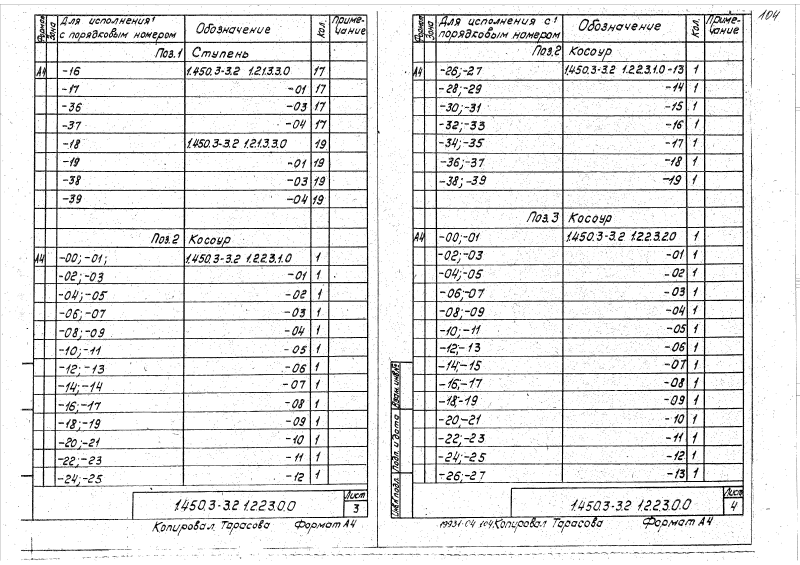 104
Формат Зона Для исполнения с порядковым номером Обозначение Кол. Примечание
Поз.1 Ступень
А4 -16 1.450.3-3.2 1.2.1.3.3.0 17
-17 -01 17
-36 -03 17
-37 -04 17
-18 1.450.3-3.2 1.2.1.3.3.0 19
-19 -01 19
-38 -03 19
-39 -04 19
Поз.2 Косоур
А4 -00;-01; 1.450.3-3.2 1.2.2.3.1.0 1
-02;-03 -01 1
-04;-05 -02 1
-06;-07 -03 1
-08;-09 -04 1
-10;-11 -05 1
-12;-13 -06 1
-14;-14 -07 1
-16;-17 -08 1
-18;-19 -09 1
-20;-21 -10 1
-22;-23 -11 1
-24;-25 -12 1
1.450.3-3.2 1.2.2.3.0.0 Лист 3
Копировал Тарасова Формат А4
Формат Зона Для исполнения с порядковым номером Обозначение Кол. Примечание
Поз.2 Косоур
А4 -26;-27 1.450.3-3.2 1.2.2.3.1.0-13 1
-28;-29 -14 1
-30;-31 -15 1
-32;-33 -16 1
-34;-35 -17 1
-36;-37 -18 1
-38;-39 -19 1
Поз.3 Косоур
А4 -00;-01 1.450.3-3.2 1.2.2.3.2.0 1
-02;-03 -01 1
-04;-05 -02 1
-06;-07 -03 1
-08;-09 -04 1
-10;-11 -05 1
-12;-13 -06 1
-14;-15 -07 1
-16;-17 -08 1
-18;-19 -09 1
-20;-21 -10 1
-22;-23 -11 1
-24;-25 -12 1
-26;-27 -13 1
Инв.№ подл. Подп. и дата Взам. инв.№
1.450.3-3.2 1.2.2.3.0.0 Лист 4
19931-04 104 Копировал Тарасова Формат А4